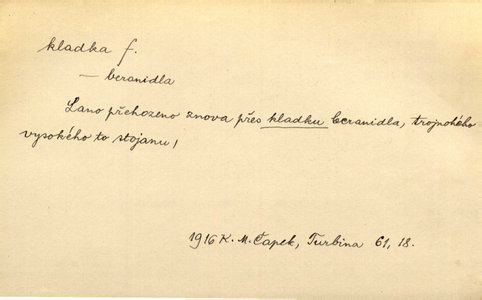 kladka f.
— beranidla
Lano přehozeno znova přes kladku beranidla, trojnohého
vysokého to stojanu,
1916 K. M. Čapek, Turbina 61, 18.